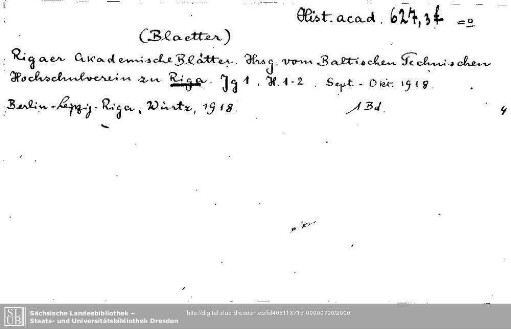 Hist. acad. 627,37 =o
(Blaetter)
Rigaer Akademische Blätter. Hrsg. vom Baltischen Technischen
Hochschulverein zu Riga. Jg 1, H. 1-2. Sept. - Okt. 1918.
Berlin-Leipzig-Riga, Würtz, 1918. 1 Bd. 4
SLUB
Sächsische Landesbibliothek –
Staats- und Universitätsbibliothek Dresden